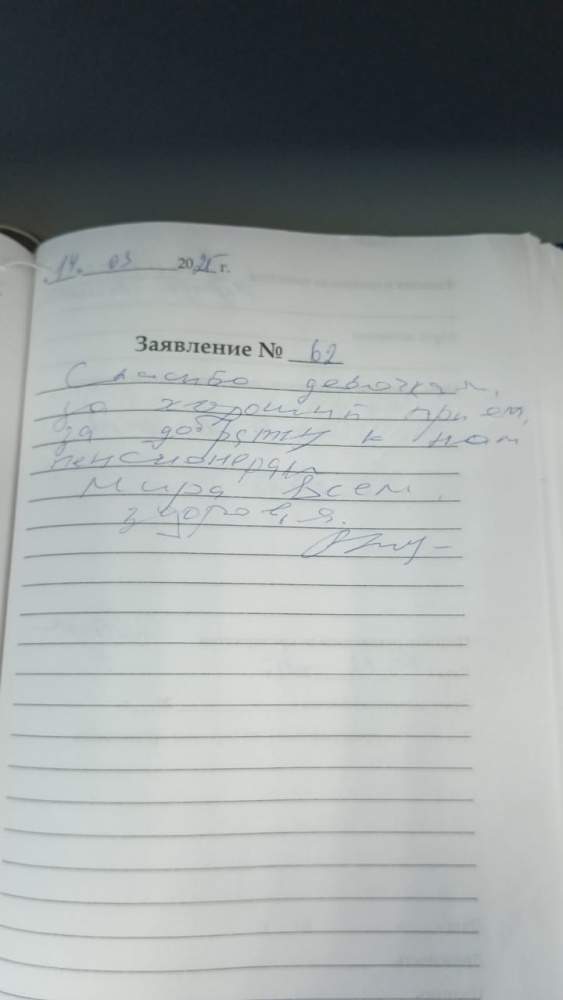 14. 03 2025 г.
Заявление № 62
Спасибо девочкам,
за хороший прием,
за доброту к нам
пенсионерам
Мира всем,
здоровья.